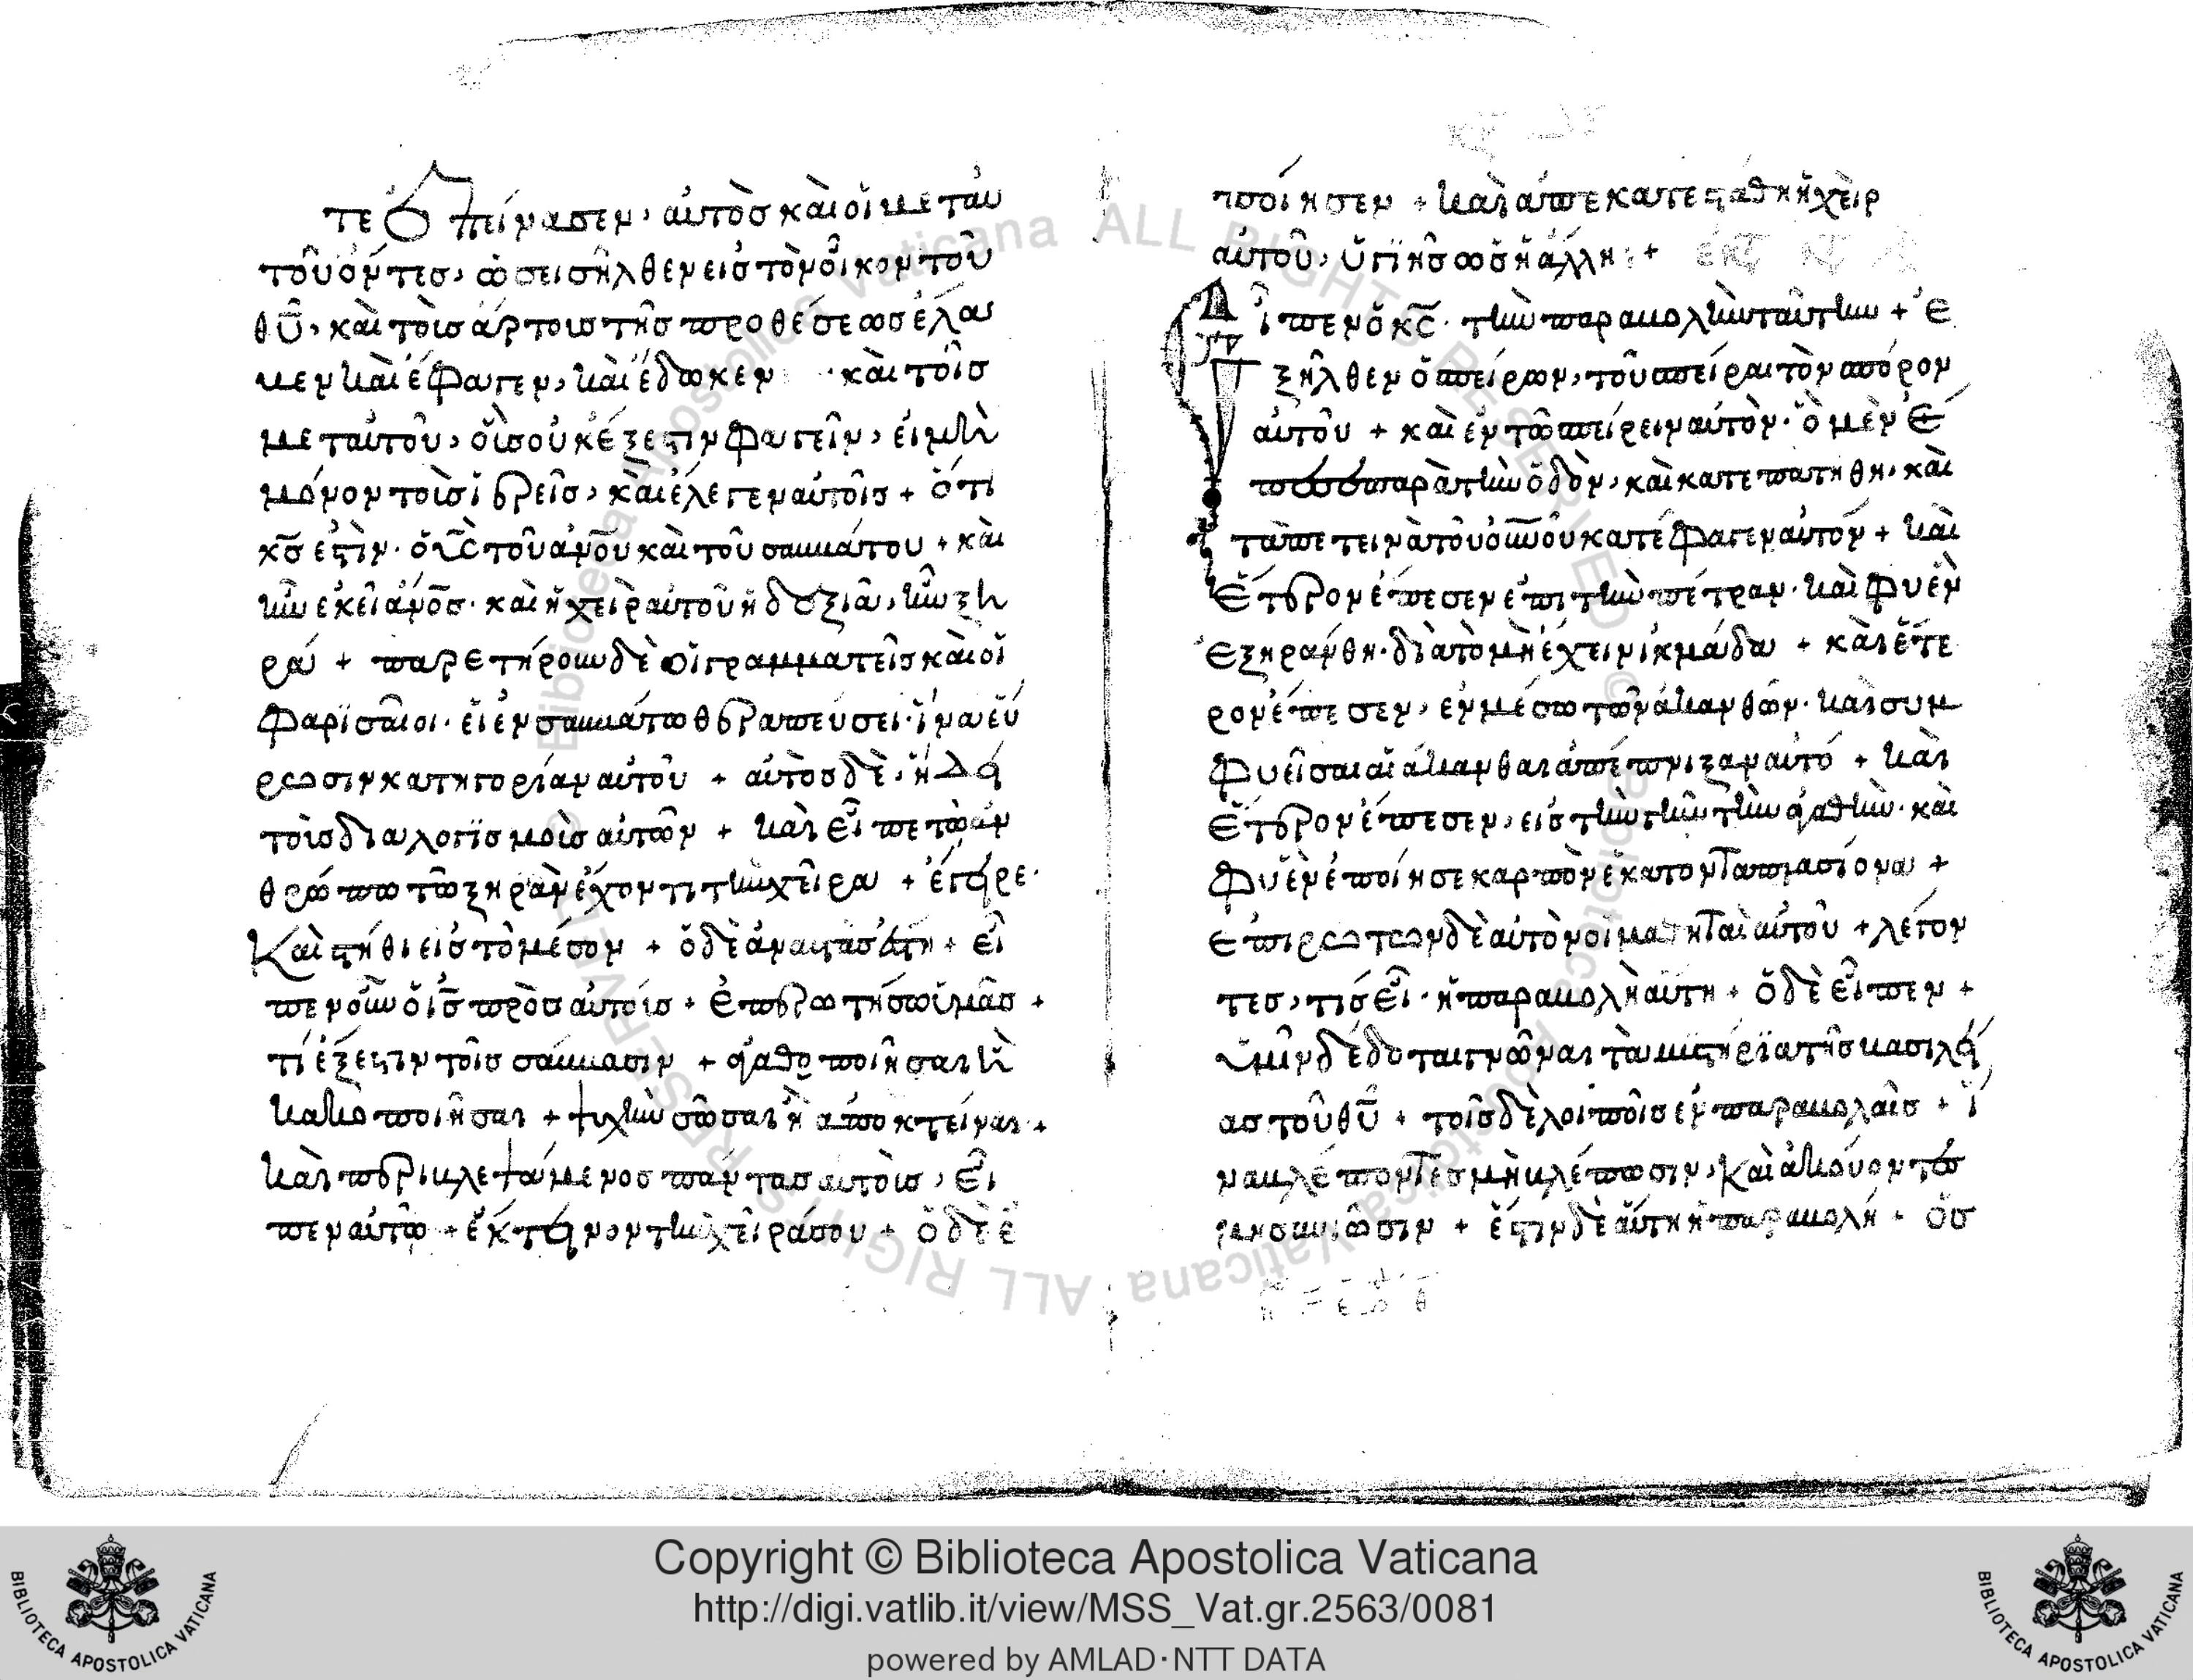 τε ὁ πείνασεν, αὐτὸσ καὶ οἱ μεταυ
τοῦ ὄντεσ, ὡσ εισῆλθεν εἰσ τὸν οἶκον τοῦ
θῡ, καὶ τοὺσ ἄρτουσ τῆσ προθέσεωσ ἔλαυ
μεν καὶ ἔφαγεν, καὶ ἔδωκεν · καὶ τοῖσ
μεταὐτοῦ, οἷσ οὐκ ἔξεστιν φαγεῖν, εἰ μὴ
μόνον τοὺσ ἱερεῖσ, καὶ ἔλεγεν αὐτοῖσ + ὅτι
κ̄σ ἐστὶν · ὁ ῡσ τοῦ ἀν̄ου καὶ τοῦ σαββάτου + καὶ
ἦν ἐκεῖ ἄν̄οσ · καὶ ἡ χεὶρ αὐτοῦ ἡ δεξιὰ, ἦν ξη
ρά + παρετήρουν δὲ οἱ γραμματεῖσ καὶ οἱ
Φαρϊσαῖοι · εἰ ἐν σαββάτω θεραπεύσει · ἵνα εὕ
ρωσιν κατηγορίαν αὐτοῦ + αὐτὸσ δὲ, ἤδει
τοὺσ διαλογϊσμοὺσ αὐτῶν + καὶ εἶπε τῶ ἀν
θρώπω τῶ ξηρὰν ἔχοντι τὴν χεῖρα + ἔγειρε ·
Καὶ στῆθι εἰσ τὸ μέσον + ὁ δὲ ἀναστὰσ ἔστη + εἶ
πεν οὖν ὁ ῑσ πρὸσ αὐτούσ + ἐπερωτήσω ὑμᾶσ +
τί ἔξεστιν τοῖσ σάββασιν + ἀγαθοποιῆσαι ἢ
κακοποιῆσαι + ψυχὴν σῶσαι ἢ ἀποκτεῖναι +
καὶ περιβλεψάμενοσ πάντασ αὐτοὺσ, εἶ
πεν αὐτῶ + ἔκτεινον τὴν χεῖρά σου + ὁ δὲ ἐ
ποίησεν + καὶ ἀπεκατεστάθη ἡ χεὶρ
αὐτοῦ, ὑγϊὴσ ὡσ ἡ ἄλλη : +
Εἶπεν ὁ κ̄σ · τὴν παραβολὴν ταύτην + ἐ
ξῆλθεν ὁ σπείρων, τοῦ σπεῖραι τὸν σπόρον
αὐτοῦ + καὶ ἐν τῶ σπείρειν αὐτὸν · ὃ μὲν ἔ
πεσε παρὰ τὴν ὁδὸν, καὶ κατεπατήθη, καὶ
τὰ πετεινὰ τοῦ οὐ̄νοῦ κατέφαγεν αὐτόν + καὶ
ἕτερον ἔπεσεν ἐπι τὴν πέτραν · καὶ φυὲν
ἐξηράνθη · διὰ τὸ μὴ ἔχειν ἰκμάδα + καὶ ἕτε
ρον ἔπεσεν, ἐν μέσω τῶν ἀκανθῶν · καὶ συμ
φυεῖσαι αἱ ἄκανθαι ἀπέπνιξαν αὐτό + καὶ
ἕτερον ἔπεσεν, εἰσ τὴν γῆν τὴν ἀγαθήν · καὶ
φυὲν ἐποίησε καρπὸν ἑκατονταπλασίονα +
ἐπιρώτων δὲ αὐτὸν οἱ μαθηταὶ αὐτοῦ + λέγον
τεσ, τίσ εἶ · ἡ παραβολὴ αὕτη + ὁ δὲ εἶπεν +
ὑμῖν δέδοται γνῶναι τὰ μυστήρϊα τῆσ βασιλεί
ασ τοῦ θῡ + τοῖσ δὲ λοιποῖσ ἐν παραβολαῖσ + ἵ
να βλέποντεσ μὴ βλέπωσιν, καὶ ἀκούοντεσ
μὴ συνιῶσιν + ἔστιν δὲ αὕτη ἡ παραβολή + ὁ σ
Copyright © Biblioteca Apostolica Vaticana
http://digi.vatlib.it/view/MSS_Vat.gr.2563/0081
powered by AMLAD·NTT DATA